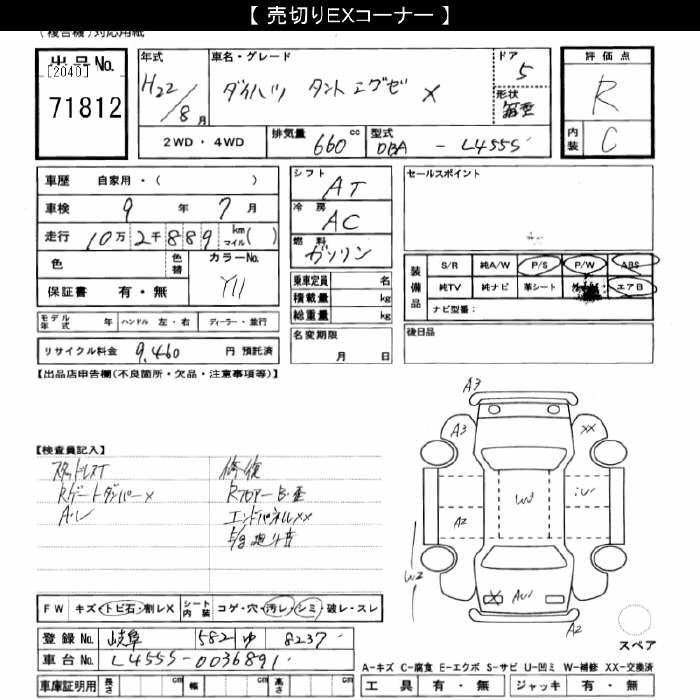 【 売切りEXコーナー 】
(複合機)対応用紙
出品No.
[2040]
71812
年式
H22/8月
車名・グレード
ダイハツ タントエグゼ X
ドア
5
形状
箱型
評価点
R
内装
C
2WD・4WD
排気量 660 cc
型式 DBA - L455S
車歴 自家用・( )
車検 9 年 7 月
走行 10万 2千 8 8 9 km マイル( )
色
色替
カラーNo.
Y11
保証書 有・無
モデル年式 年 ハンドル 左・右 ディーラー・並行
リサイクル料金 9,460 円 預託済
シフト
AT
冷房
AC
燃料
ガソリン
乗車定員 名
積載量 kg
総重量 kg
名変期限
月 日
セールスポイント
装備品
S/R 純A/W P/S P/W ABS
純TV 純ナビ 革シート エアB
ナビ型番:
後日品
【出品店申告欄(不良箇所・欠品・注意事項等)】
【検査員記入】
スタッドレスT
Rゲートダンパー×
A・U
修復
Rフロアー B・歪
エンドパネル××
A3
A3
××
W
iU
A2
W2
× AW
A2
スペア
FW キズ・トビ石・割レX
シート内装 コゲ・穴・汚レ・シミ・破レ・スレ
登録No. 岐阜 582 ゆ 8237
車台No. L455S-0036891
車庫証明用 長さ cm 幅 cm 高さ cm
A-キズ C-腐食 E-エクボ S-サビ U-凹ミ W-補修 XX-交換済
工具 有・無 ジャッキ 有・無